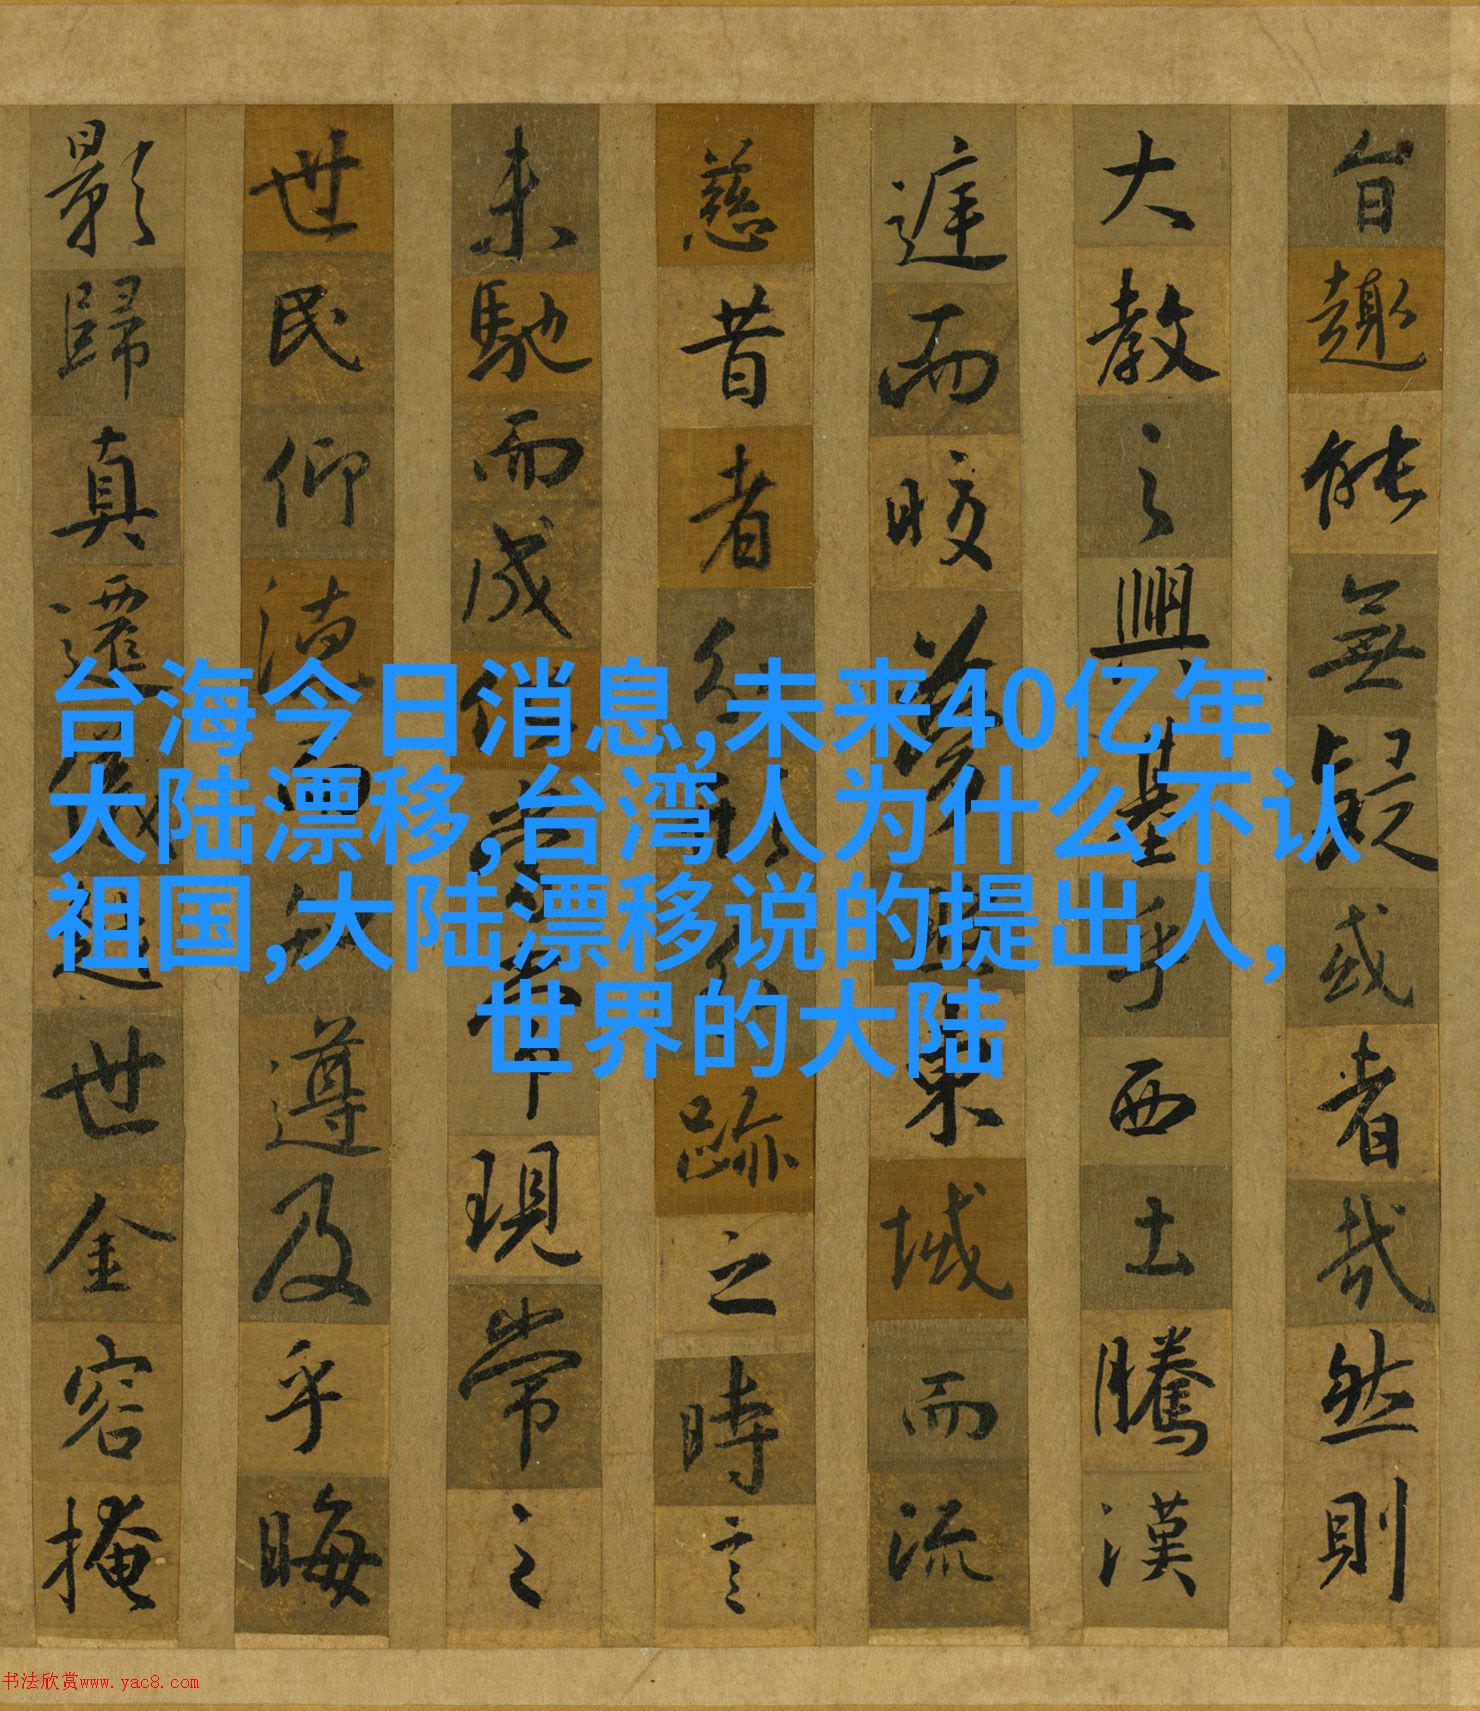 台海今日消息,未来40亿年
大陆漂移,台湾人为什么不认
祖国,大陆漂移说的提出人,
世界的大陆
旨趣能無疑或者哉然則
大教之興基乎西土騰漢
庭而皎夢照東域而流
慈昔者分形分跡之時言
未馳而成化當常現常之
世民仰德而知遵及乎晦
影歸真遷儀越世金容掩
书法欣赏www.yac8.com